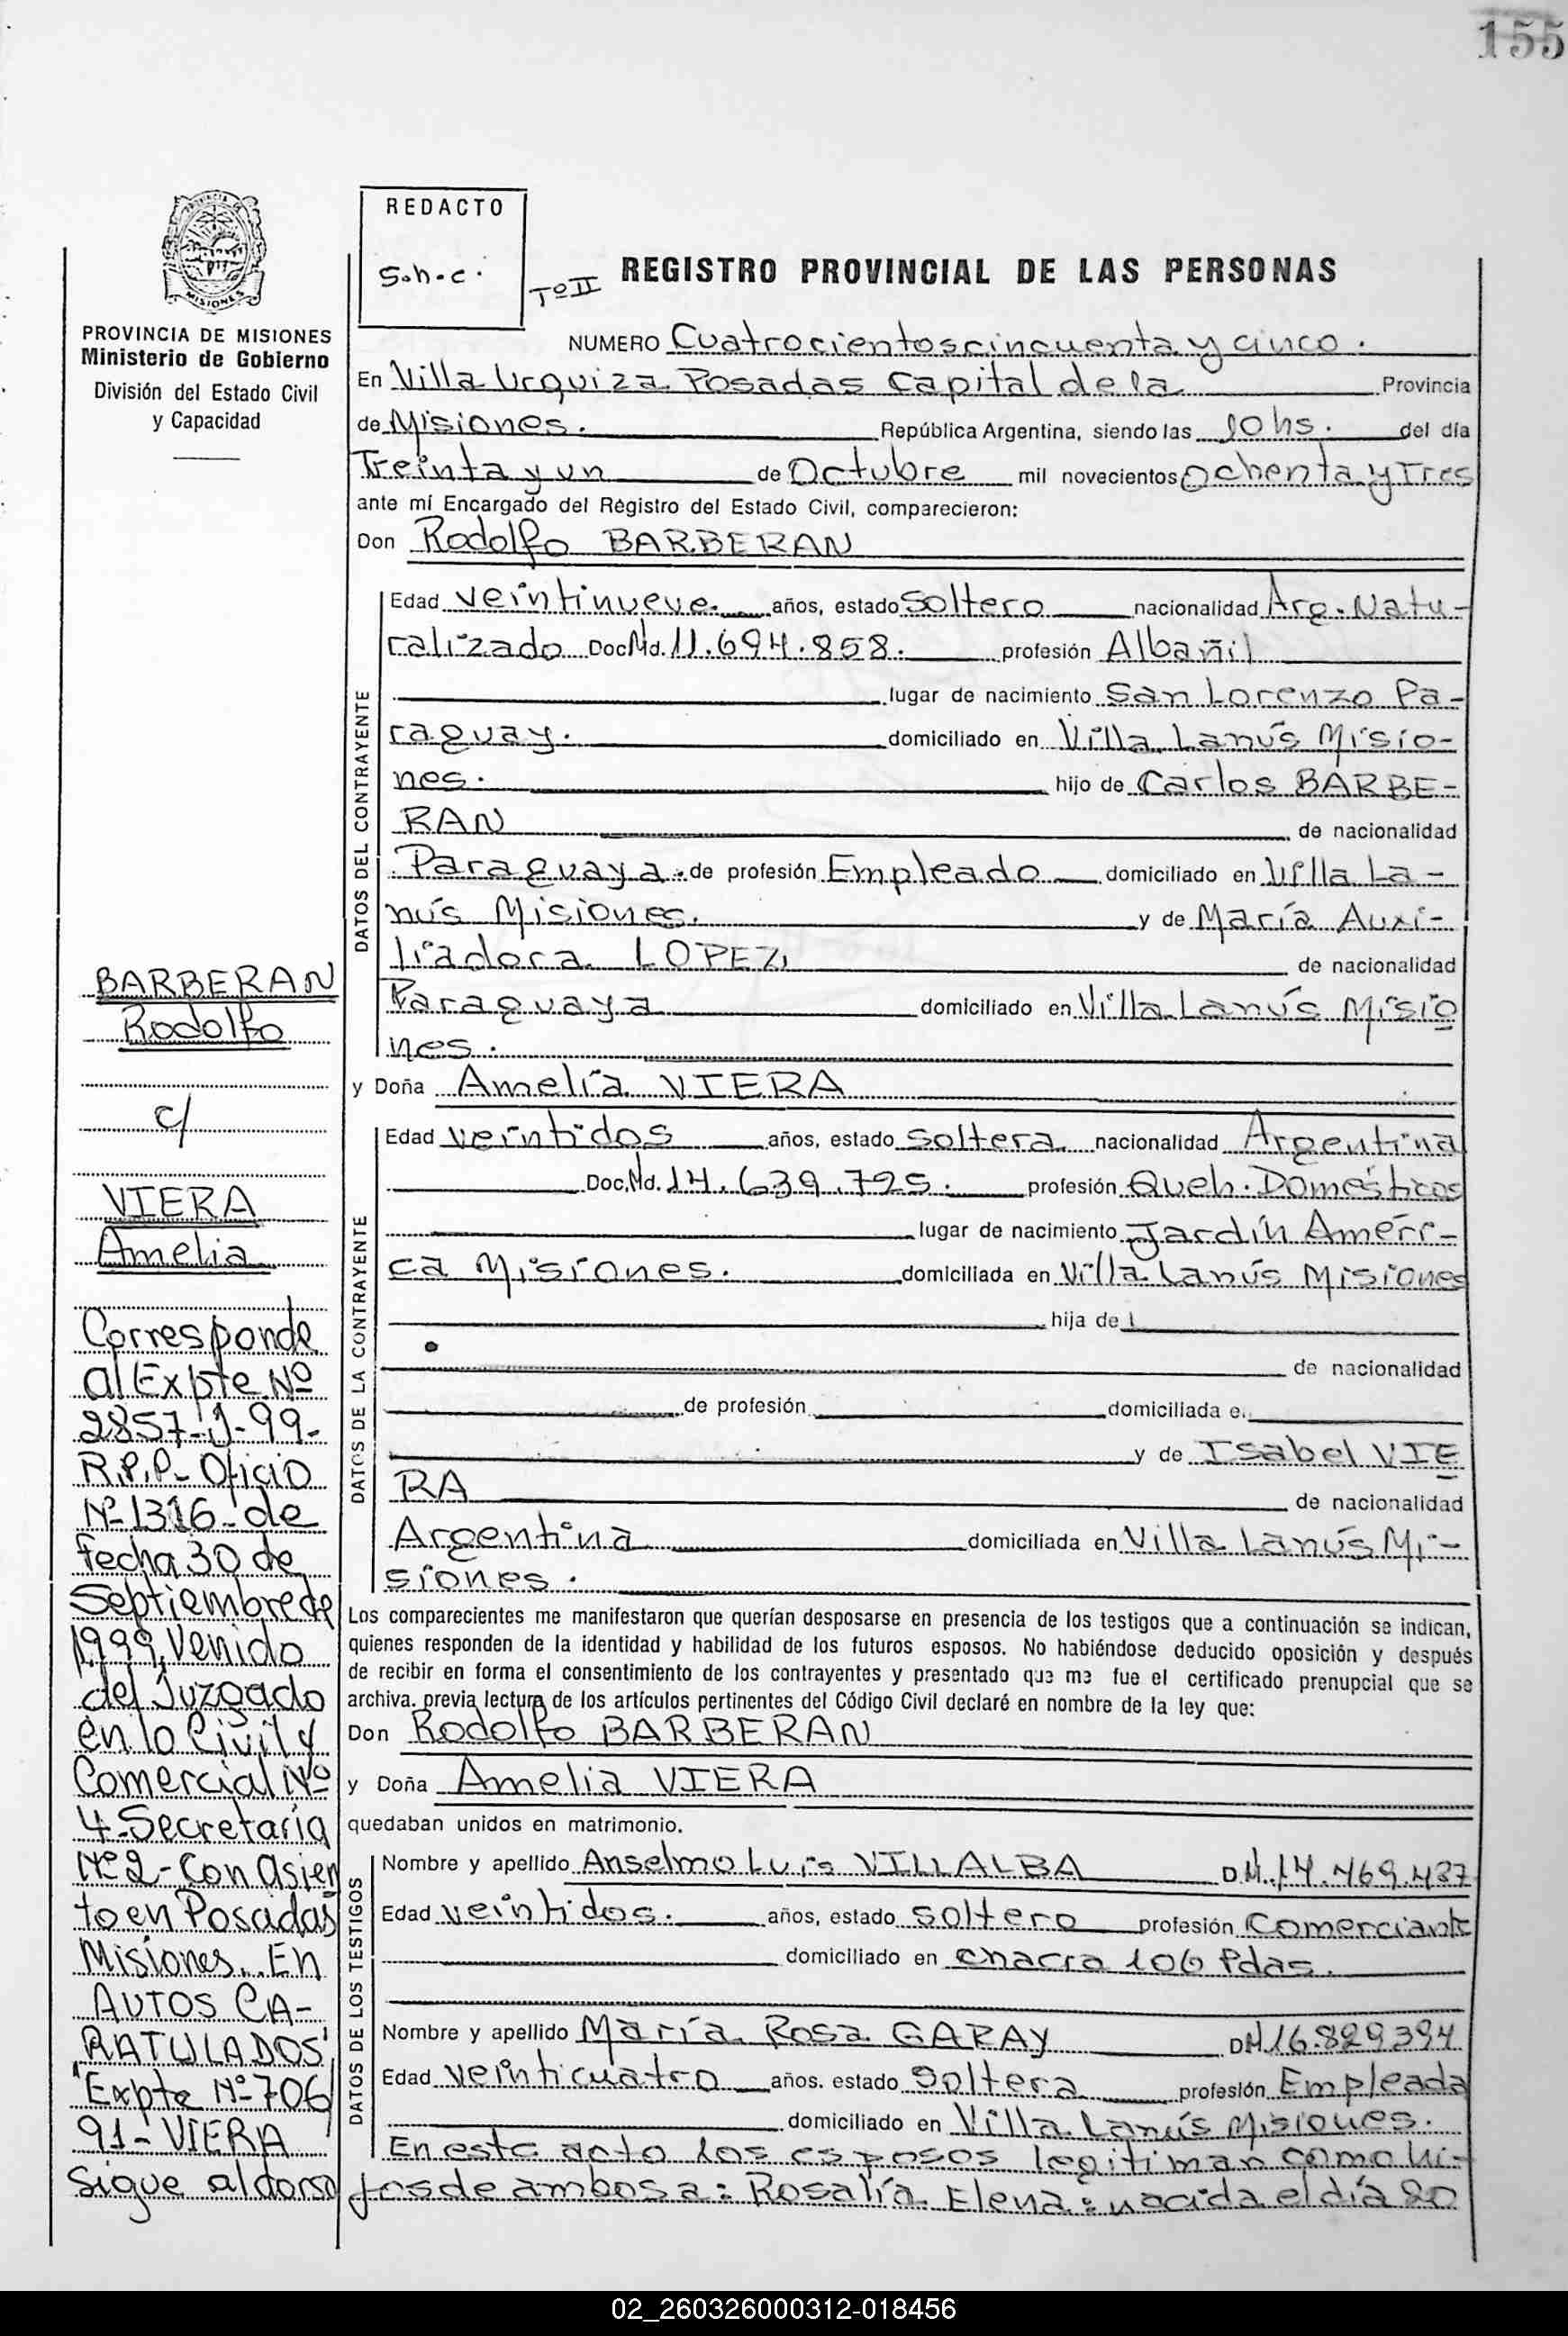 155
REDACTO
S.h.c.
Tº II
REGISTRO PROVINCIAL DE LAS PERSONAS
MISIONES
PROVINCIA DE MISIONES
Ministerio de Gobierno
División del Estado Civil
y Capacidad
NUMERO Cuatrocientoscincuenta y cinco.
En Villa Urquiza Posadas Capital de la Provincia
de Misiones. República Argentina, siendo las 10 hs. del día
Treinta y un de Octubre mil novecientos ochenta y Tres
ante mí Encargado del Registro del Estado Civil, comparecieron:
Don Rodolfo BARBERAN
DATOS DEL CONTRAYENTE
Edad veintinueve. años, estado Soltero nacionalidad Arg. Natu-
ralizado Doc. Nd. 11.694.858. profesión Albañil
lugar de nacimiento San Lorenzo Pa-
raguay. domiciliado en Villa Lanús Misio-
nes. hijo de Carlos BARBE-
RAN de nacionalidad
Paraguaya. de profesión Empleado domiciliado en Villa La-
nús Misiones. y de María Auxi-
liadora LOPEZ de nacionalidad
Paraguaya domiciliado en Villa Lanús Misio
nes.
y Doña Amelia VIERA
DATOS DE LA CONTRAYENTE
Edad veintidos años, estado Soltera nacionalidad Argentina
Doc. Nd. 14.639.725. profesión Queh. Domésticos
lugar de nacimiento Jardín Améri-
ca Misiones. domiciliada en Villa Lanús Misiones
hija de
de nacionalidad
de profesión domiciliada e.
y de Isabel VIE
RA de nacionalidad
Argentina domiciliada en Villa Lanús Mi-
siones.
Los comparecientes me manifestaron que querían desposarse en presencia de los testigos que a continuación se indican,
quienes responden de la identidad y habilidad de los futuros esposos. No habiéndose deducido oposición y después
de recibir en forma el consentimiento de los contrayentes y presentado que me fue el certificado prenupcial que se
archiva. previa lectura de los artículos pertinentes del Código Civil declaré en nombre de la ley que:
Don Rodolfo BARBERAN
y Doña Amelia VIERA
quedaban unidos en matrimonio.
DATOS DE LOS TESTIGOS
Nombre y apellido Anselmo Luis VILLALBA DN. 14.469.437
Edad veintidos. años, estado soltero profesión Comerciante
domiciliado en chacra 106 Pdas.
Nombre y apellido María Rosa GARAY DN 16.829394
Edad veinticuatro años. estado Soltera profesión Empleada
domiciliado en Villa Lanús Misiones.
En este acto los esposos legitiman como hi-
jos de ambos a: Rosalía Elena: nacida el día 20
BARBERAN
Rodolfo
c/
VIERA
Amelia
Corresponde
al Expte Nº
2857-J-99-
R.P.P- Oficio
Nº 1316- de
fecha 30 de
Septiembre de
1999, Venido
del Juzgado
en lo Civil y
Comercial Nº
4- Secretaria
Nº 2- Con asien
to en Posadas
Misiones. En
AUTOS CA-
RATULADOS
"Expte Nº 706
91- VIERA
sigue al dorso
02_260326000312-018456